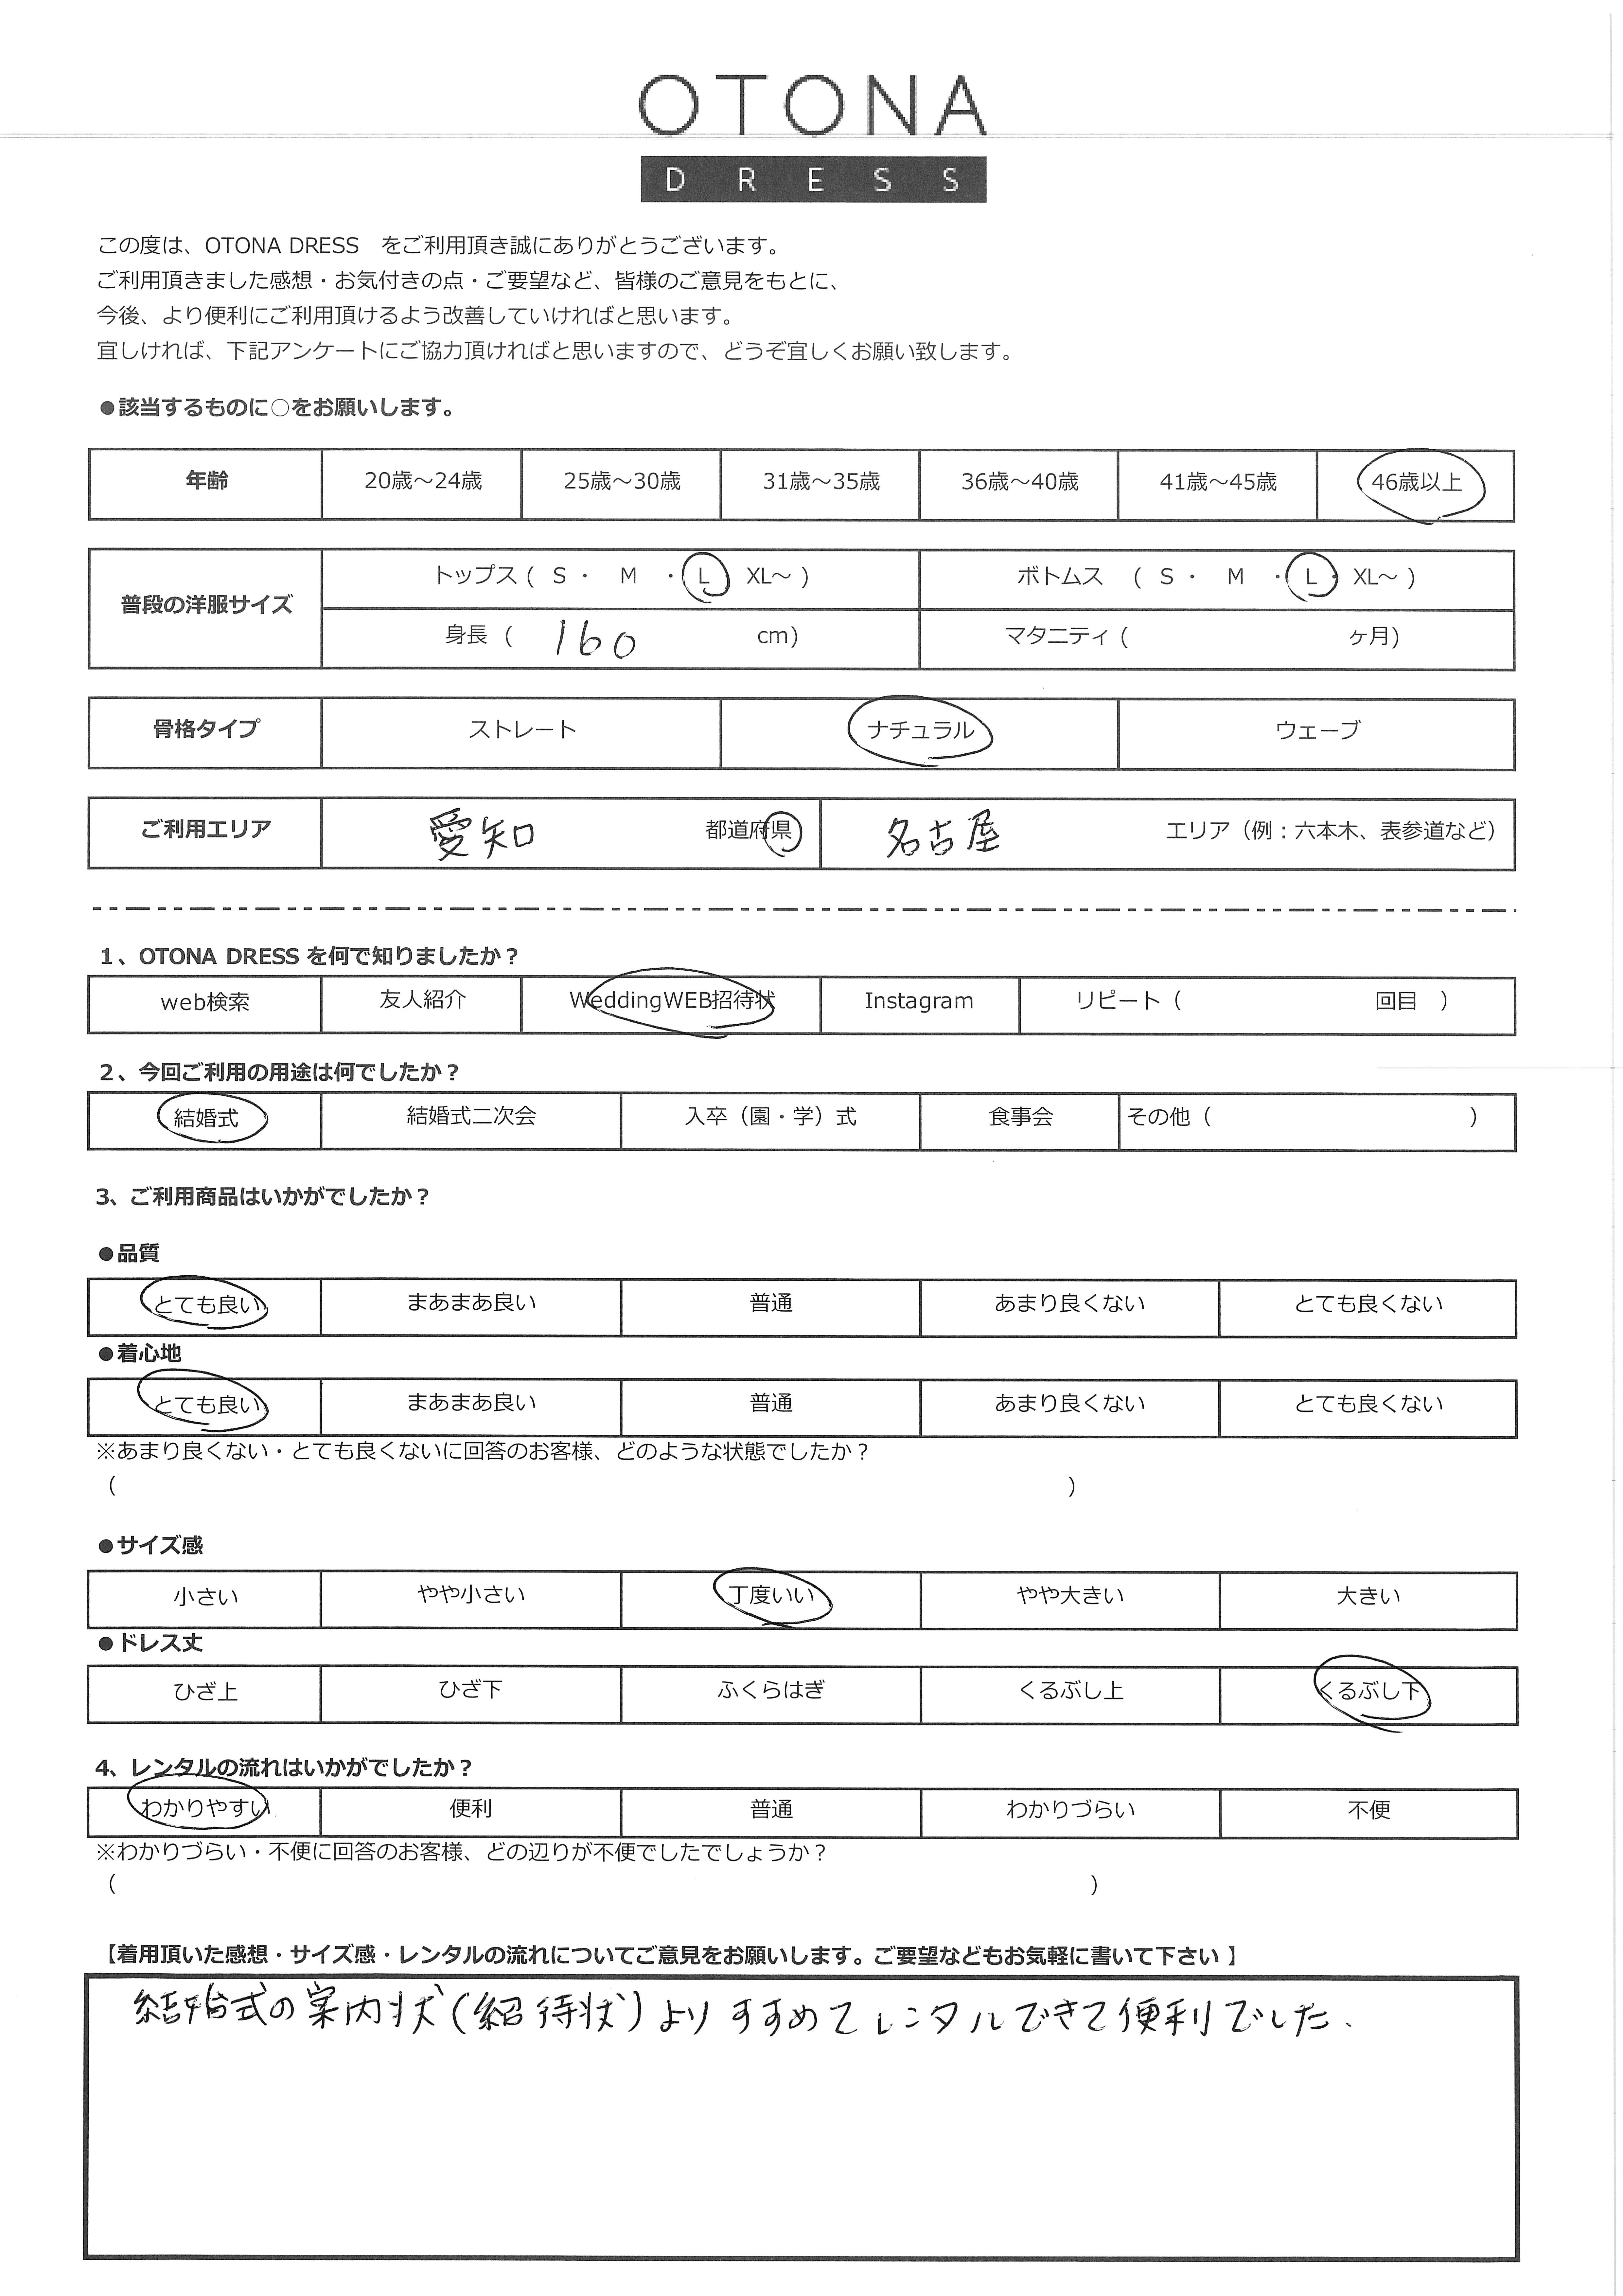 OTONA
DRESS
この度は、OTONA DRESS　をご利用頂き誠にありがとうございます。
ご利用頂きました感想・お気付きの点・ご要望など、皆様のご意見をもとに、
今後、より便利にご利用頂けるよう改善していければと思います。
宜しければ、下記アンケートにご協力頂ければと思いますので、どうぞ宜しくお願い致します。
●該当するものに○をお願いします。
年齢 20歳～24歳 25歳～30歳 31歳～35歳 36歳～40歳 41歳～45歳 46歳以上
普段の洋服サイズ トップス ( S ・ M ・ L XL～ ) ボトムス ( S ・ M ・ L ・ XL～ )
身長 ( 160 cm) マタニティ ( ヶ月)
骨格タイプ ストレート ナチュラル ウェーブ
ご利用エリア 愛知 都道府県 名古屋 エリア（例：六本木、表参道など）
1、OTONA DRESS を何で知りましたか？
web検索 友人紹介 WeddingWEB招待状 Instagram リピート（ 回目 ）
2、今回ご利用の用途は何でしたか？
結婚式 結婚式二次会 入卒（園・学）式 食事会 その他（ ）
3、ご利用商品はいかがでしたか？
●品質
とても良い まあまあ良い 普通 あまり良くない とても良くない
●着心地
とても良い まあまあ良い 普通 あまり良くない とても良くない
※あまり良くない・とても良くないに回答のお客様、どのような状態でしたか？
（ ）
●サイズ感
小さい やや小さい 丁度いい やや大きい 大きい
●ドレス丈
ひざ上 ひざ下 ふくらはぎ くるぶし上 くるぶし下
4、レンタルの流れはいかがでしたか？
わかりやすい 便利 普通 わかりづらい 不便
※わかりづらい・不便に回答のお客様、どの辺りが不便でしたでしょうか？
（ ）
【着用頂いた感想・サイズ感・レンタルの流れについてご意見をお願いします。ご要望などもお気軽に書いて下さい 】
結婚式の案内状(紹待状)よりすすめてレンタルできて便利でした.